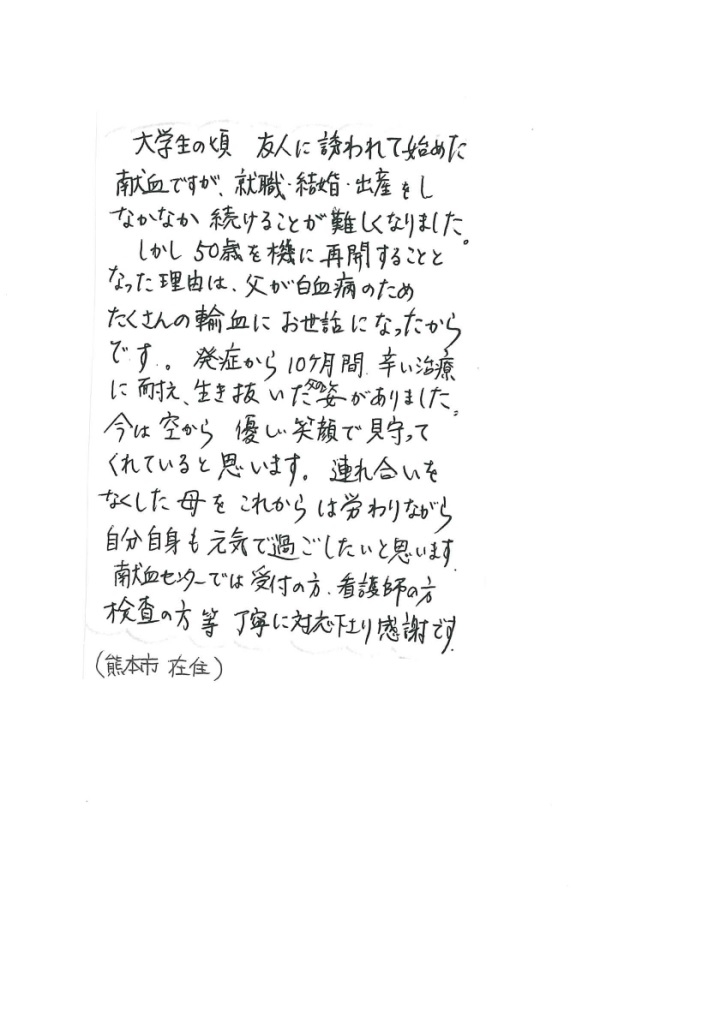 大学生の頃 友人に誘われて始めた
献血ですが、就職・結婚・出産をし
なかなか続けることが難しくなりました。
しかし50歳を機に再開することと
なった理由は、父が白血病のため
たくさんの輸血にお世話になったから
です。発症から10ケ月間、辛い治療
に耐え、生き抜いた父の姿がありました。
今は空から 優しい笑顔で見守って
くれていると思います。連れ合いを
なくした母をこれからは労わりながら
自分自身も元気で過ごしたいと思います。
献血センターでは受付の方、看護師の方
検査の方等 丁寧に対応下さり感謝です。
(熊本市 在住)